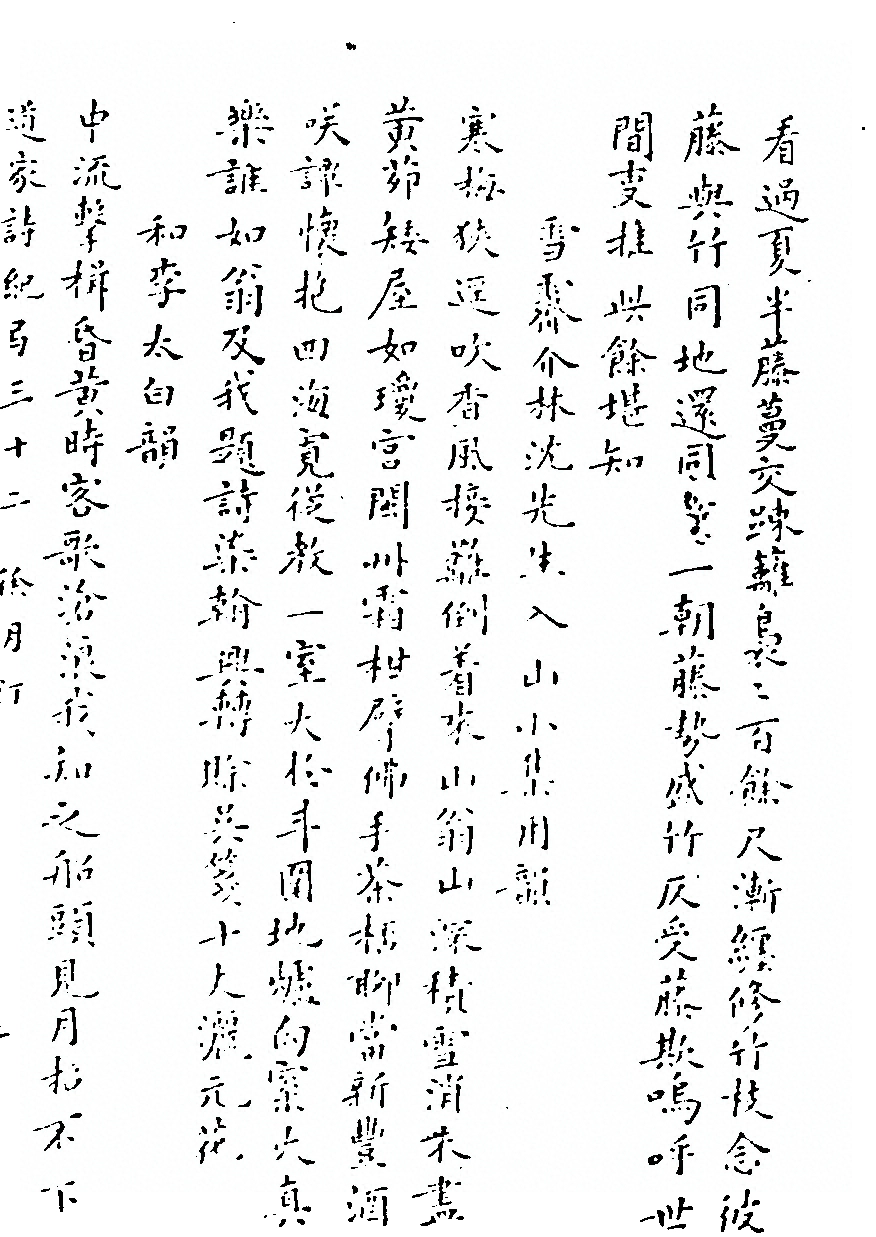 看過夏半藤蔓交疎籬裊〻百餘尺漸纏修竹枝念彼
藤與竹同地還同時一朝藤勢盛竹仄受藤欺嗚呼世
間事推此餘堪知
雪霽介林沈先生入山小集用韻
寒梅狹逕吹香風接䍦倒着來山翁山深積雪消未盡
黃茆矮屋如瓊宮閩州霜柑擘佛手茶栝聊當新豐酒
咲謔懷抱四海寬從教一室大於斗圍地爐的窠火真
樂誰如翁及我題詩染翰興轉賒吳箋十丈灑元花
和李太白韻
中流擊楫昏黃時客歌滄浪我知之船頭見月招不下
道家詩紀弓三十二